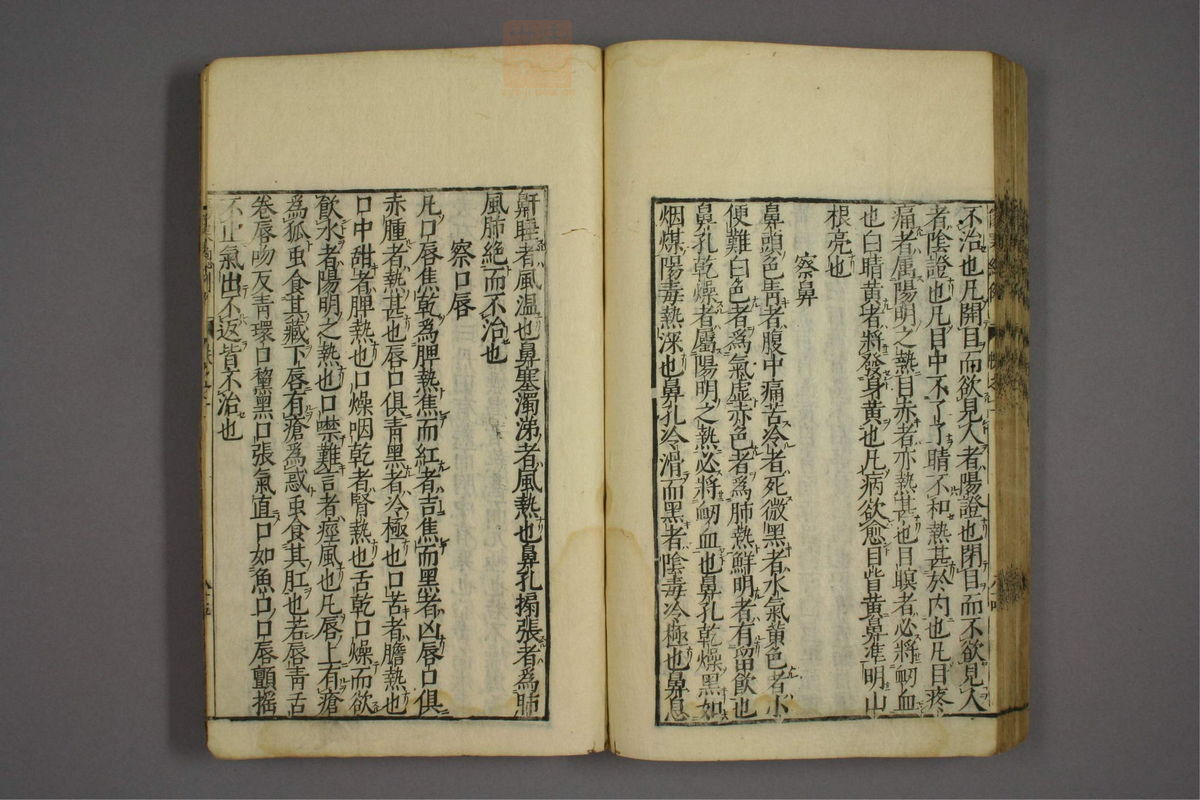 不治也凡開目而欲見人者陽證也閉目而不欲見人
者陰證也凡目中不了了睛不和熱甚於內也凡目疼
痛者属陽明之熱目赤者亦熱甚也目瞑者必將衂血
也白睛黃者將發身黃也凡病欲愈目眥黃鼻準明山
根亮也
察鼻
鼻頭色青者腹中痛苦冷者死微黑者水氣黃色者小
便難白色者為氣虛赤色者為肺熱鮮明者有留飲也
鼻孔乾燥者屬陽明之熱必將衂血也鼻孔乾燥黑如
烟煤陽毒熱深也鼻孔冷滑而黑者陰毒冷極也鼻息
鼾睡者風溫也鼻塞濁涕者風熱也鼻孔搧張者為肺
風肺絶而不治也
察口唇
凡口唇焦乾為脾熱焦而紅者吉焦而黑者凶唇口俱
赤腫者熱甚也唇口俱青黑者冷極也口苦者膽熱也
口中甜者脾熱也口燥咽乾者腎熱也舌乾口燥而欲
飲水者陽明之熱也口噤難言者痙風也凡唇上有瘡
為狐虫食其藏下唇有瘡為惑虫食其肛也若唇青舌
卷唇吻反青環口黧黑口張氣直口如魚口口唇顫搖
不止氣出不返皆不治也